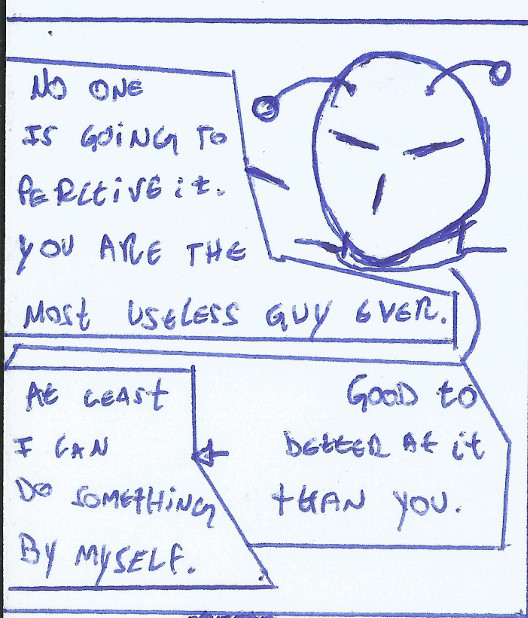 NO ONE
IS GOING TO
PERCEIVE it.
YOU ARE THE
MOST USELESS GUY EVER.
At LEAST
I CAN
DO SOMETHING
BY MYSELF.
GOOD to
BETTER At it
tHAN YOU.